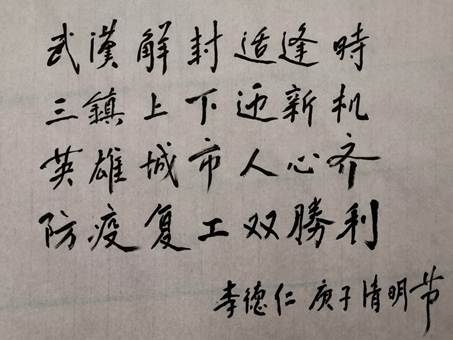 武漢解封适逢時
三鎮上下迎新机
英雄城市人心齐
防疫复工双勝利
李德仁 庚子清明节